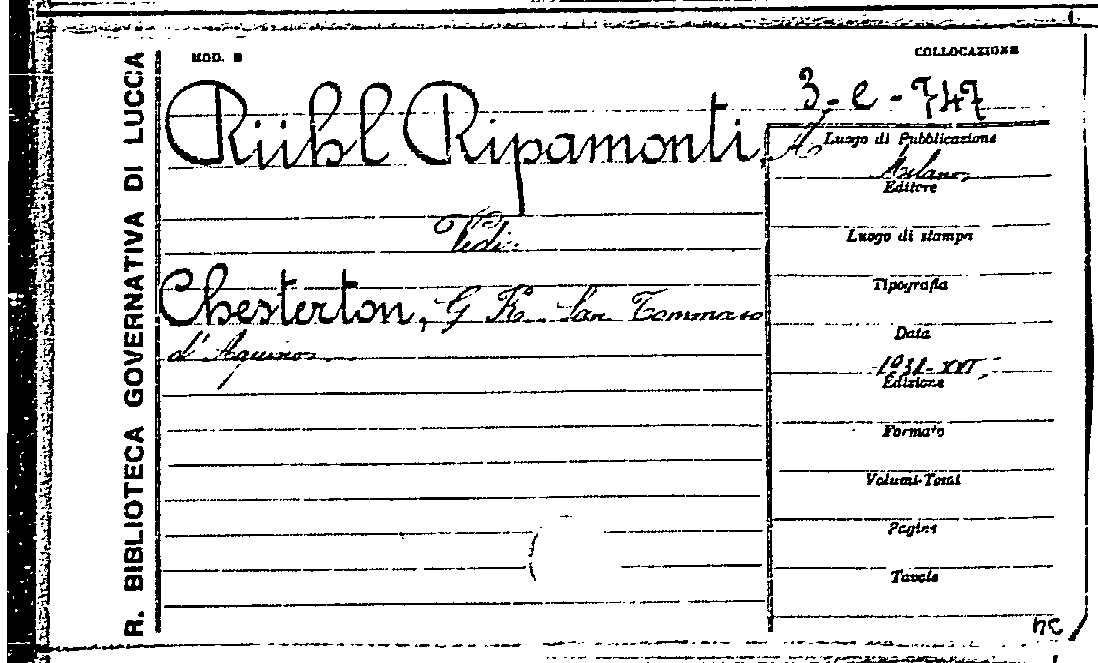 R. BIBLIOTECA GOVERNATIVA DI LUCCA
MOD. B
COLLOCAZIONE
3-e-747
Rühl Ripamonti,
Luogo di Pubblicazione
Milano,
Editore
Vedi:
Luogo di stampa
Tipografia
Chesterton, G K. San Tommaso
d'Aquino.
Data
Edizione
Formato
Volumi-Totali
Pagine
Tavole